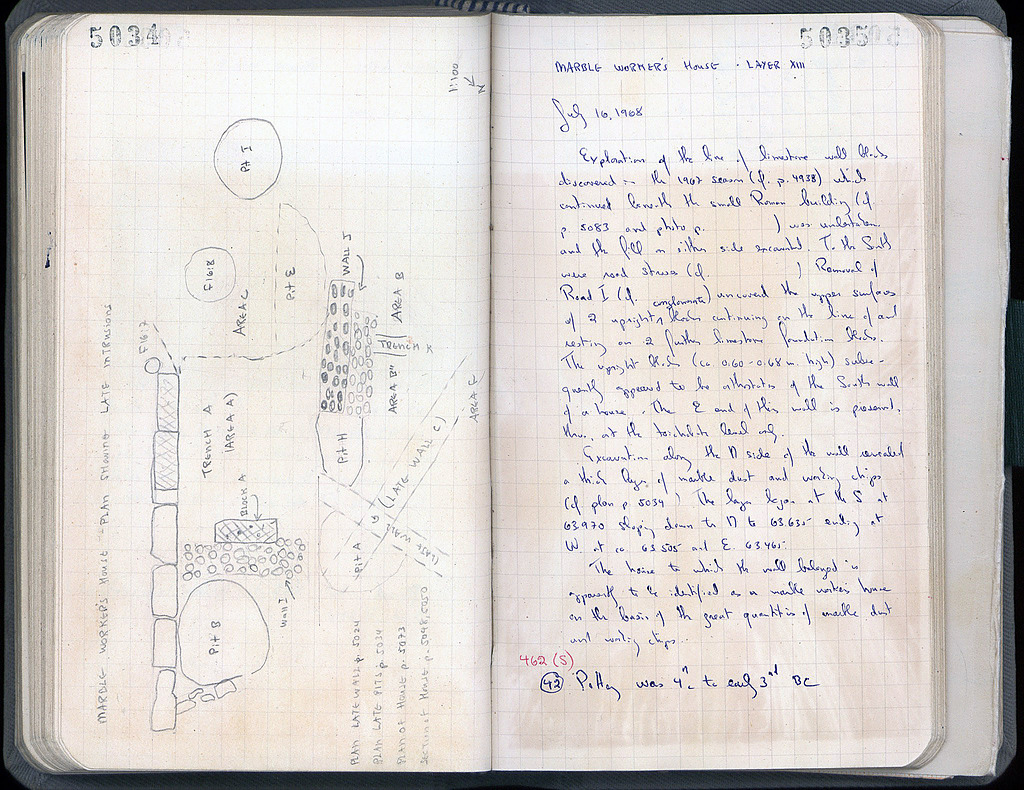 5034
MARBLE WORKER'S HOUSE - PLAN SHOWING LATE INTRUSIONS
1:100
N
Pit I
F16:8
Pit E
AREA C
F16:7
WALL J
AREA B
TRENCH X
AREA B"
TRENCH A
(AREA A)
Pit H
(LATE WALL C)
AREA F
BLOCK A
Pit A
(LATE WALL
Wall I
Pit B
PLAN LATE WALL p. 5024
PLAN LATE PITS p. 5034
PLAN OF HOUSE p. 5073
SECTION OF HOUSE p. 5048, 5050
5035
MARBLE WORKER'S HOUSE - LAYER XIII
July 16, 1968
Exploration of the line of limestone wall blocks
discovered in the 1967 season (cf. p. 4938) which
continued beneath the small Roman building (cf.
p. 5083 and photo p. ) was undertaken
and the fill on either side excavated. To the South
were road strews (cf. ) Removal of
Road I (cf. conglomerate) uncovered the upper surfaces
of 2 upright blocks continuing on the line of and
resting on 2 further limestone foundation blocks.
The upright blocks (ca. 0.60-0.68 m. high) subse-
quently appeared to be orthostates of the South wall
of a house. The E end of this wall is preserved,
thus, at the toichobate level only.
Excavation along the N side of the wall revealed
a thick layer of marble dust and working chips
(cf plan p. 5034) The layer began at the S at
63.970 sloping down to N to 63.635 ending at
W at ca. 63.505 and E. 63.465.
The house to which the wall belonged is
apparently to be identified as a marble worker's house
on the basis of the great quantities of marble dust
and working chips.
462 (S)
42 Pottery was 4th c to early 3rd BC